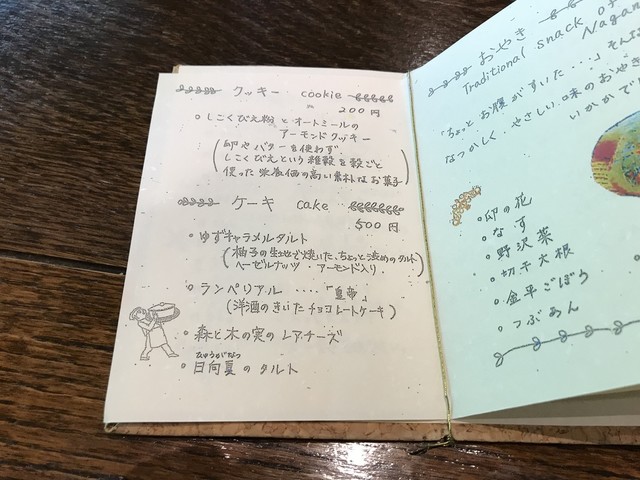 クッキー cookie
200円
・しこくびえ粉とオートミールの
アーモンドクッキー
(卵やバターを使わず
しこくびえという雑穀を殻ごと
使った栄養価の高い素朴なお菓子)
ケーキ cake
500円
・ゆずキャラメルタルト
(柚子の生地で焼いた、ちょっと渋めのタルト
ヘーゼルナッツ・アーモンド入り)
・ランペリアル ‥‥「皇帝」
(洋酒のきいたチョコレートケーキ)
・森と木の実のレアチーズ
ひゅうがなつ
・日向夏のタルト
おやき
Traditional snack of
Nagan
「ちょっとお腹がすいた・・・」そんな
なつかしく、やさしい味のおやき
いかかで
・卯の花
・なす
・野沢菜
・切干大根
・金平ごぼう
・つぶあん